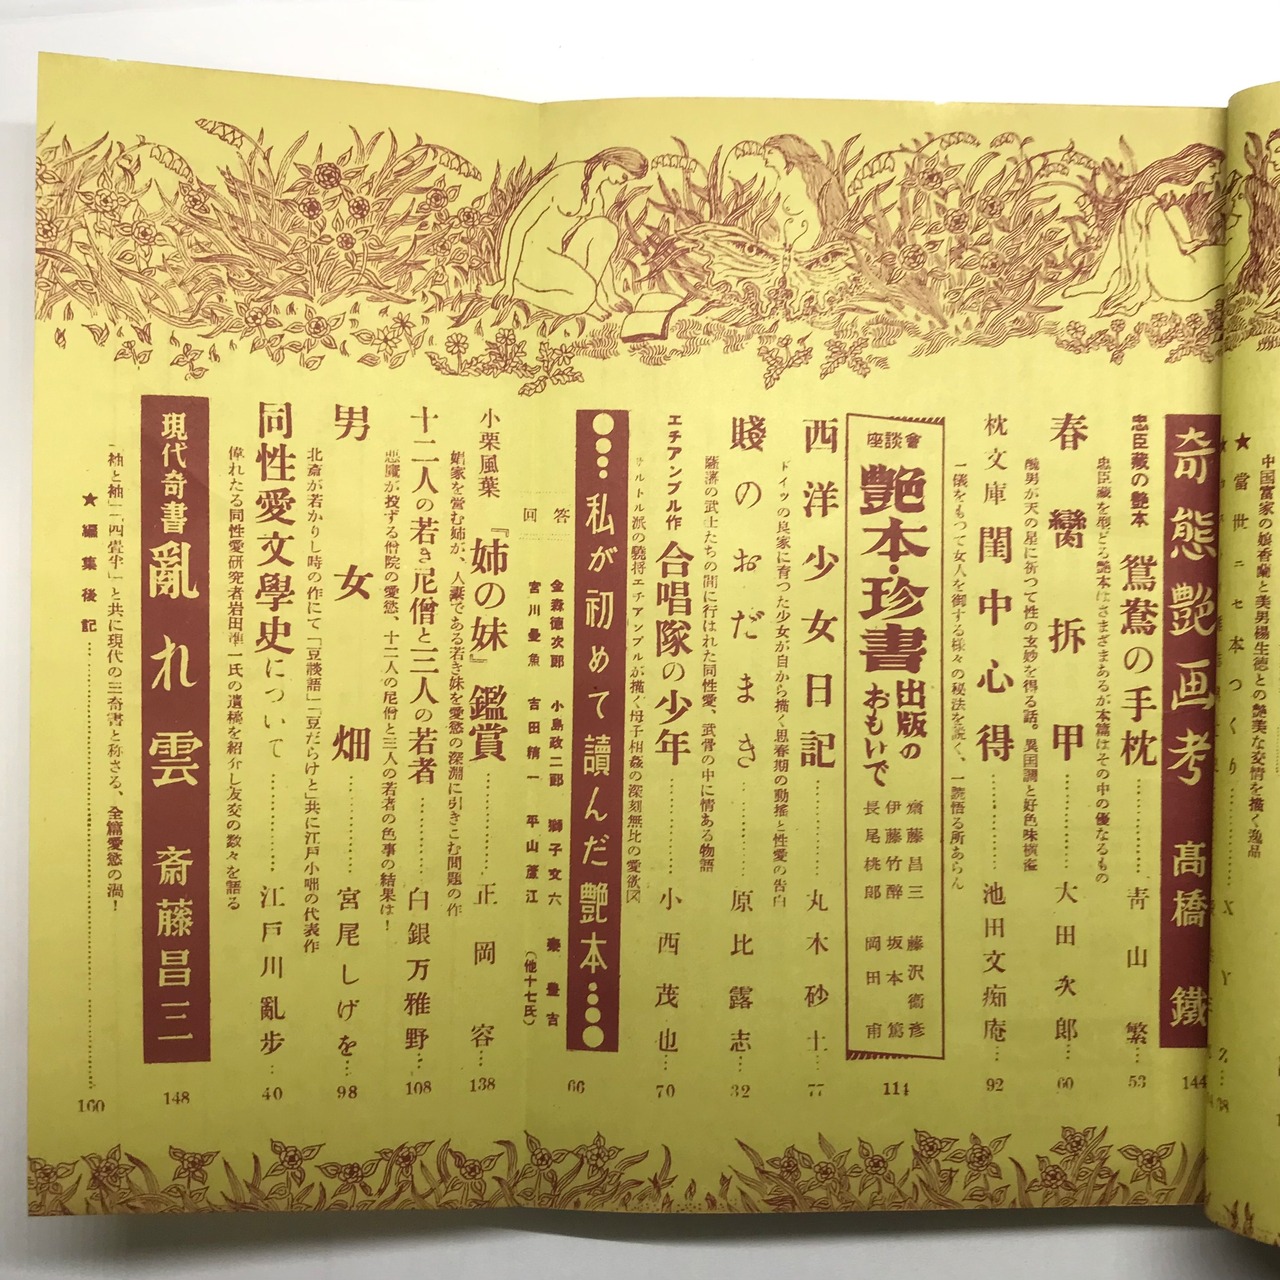 中国富家の娘香蘭と美男楊生徳との艶美な交情を描く逸品
★當世ニセ本つくり
XYZ…
38
奇態艶画考 髙橋鐵
144
忠臣蔵の艶本 鴛鴦の手枕…………靑山繁…
53
忠臣蔵を型どる艶本はさまざまあるが本篇はその中の優なるもの
春臠拆甲…………大田次郎…
60
醜男が天の星に祈つて性の玄妙を得る話。異国調と好色味横溢
枕文庫 閨中心得…………池田文痴庵…
92
一儀をもつて女人を御する様々の秘法を説く、一読悟る所あらん
座談會 艶本・珍書出版のおもいで
齋藤昌三 藤沢衞彦
伊藤竹醉 坂本篤
長尾桃郎 岡田甫
114
西洋少女日記…………丸木砂土…
77
ドイツの良家に育つた少女が自から描く思春期の動搖と性愛の告白
賤のおだまき…………原比露志…
32
薩藩の武士たちの間に行はれた同性愛、武骨の中に情ある物語
エチアンブル作 合唱隊の少年…………小西茂也…
70
サルトル派の驍将エチアンブルが描く母子相姦の深刻無比の愛欲図
●●●●私が初めて讀んだ艶本●●●●
66
回答
金森徳次郎 小島政二郎 獅子文六 秦豊吉
宮川曼魚 吉田精一 平山蘆江 (他十七氏)
小栗風葉 『姉の妹』鑑賞…………正岡容…
138
娼家を営む姉が、人妻である若き妹を愛慾の深淵に引きこむ問題の作
十二人の若き尼僧と三人の若者…………白銀万雅野…
108
悪魔が投ずる僧院の愛慾、十二人の尼僧と三人の若者の色事の結果は!
男女畑…………宮尾しげを…
98
北斎が若かりし時の作にて「豆談語」「豆だらけ」と共に江戸小咄の代表作
同性愛文學史について…………江戸川亂步…
40
偉れたる同性愛研究者岩田準一氏の遺稿を紹介し友交の数々を語る
現代奇書 亂れ雲 斎藤昌三
148
「袖と袖」「四畳半」と共に現代の三奇書と称さる、全篇愛慾の渦!
★編集後記…………
160